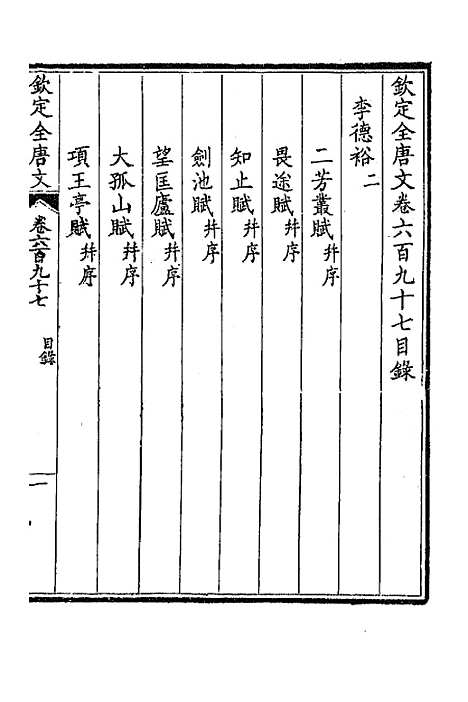 欽定全唐文卷六百九十七目錄
李德裕二
二芳叢賦并序
畏途賦并序
知止賦并序
劍池賦并序
望匡廬賦并序
大孤山賦并序
項王亭賦并序
欽定全唐文 卷六百九十七 目錄 一